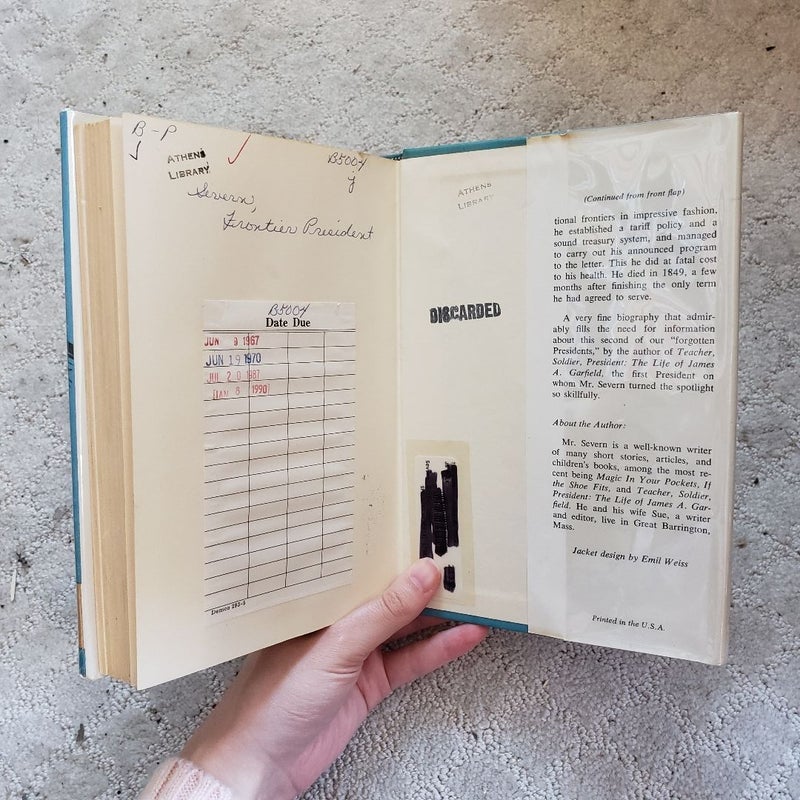 B-P
ATHENS
LIBRARY
B5004
j
Severn,
Frontier President
B5004
Date Due
JUN 8 1967
JUN 19 1970
JUL 20 1987
JAN 8 1990
Demco 293-5
ATHENS
LIBRARY
DISCARDED
(Continued from front flap)
tional frontiers in impressive fashion,
he established a tariff policy and a
sound treasury system, and managed
to carry out his announced program
to the letter. This he did at fatal cost
to his health. He died in 1849, a few
months after finishing the only term
he had agreed to serve.
A very fine biography that admir-
ably fills the need for information
about this second of our "forgotten
Presidents," by the author of Teacher,
Soldier, President: The Life of James
A. Garfield, the first President on
whom Mr. Severn turned the spotlight
so skillfully.
About the Author:
Mr. Severn is a well-known writer
of many short stories, articles, and
children's books, among the most re-
cent being Magic In Your Pockets, If
the Shoe Fits, and Teacher, Soldier,
President: The Life of James A. Gar-
field. He and his wife Sue, a writer
and editor, live in Great Barrington,
Mass.
Jacket design by Emil Weiss
Printed in the U.S.A.